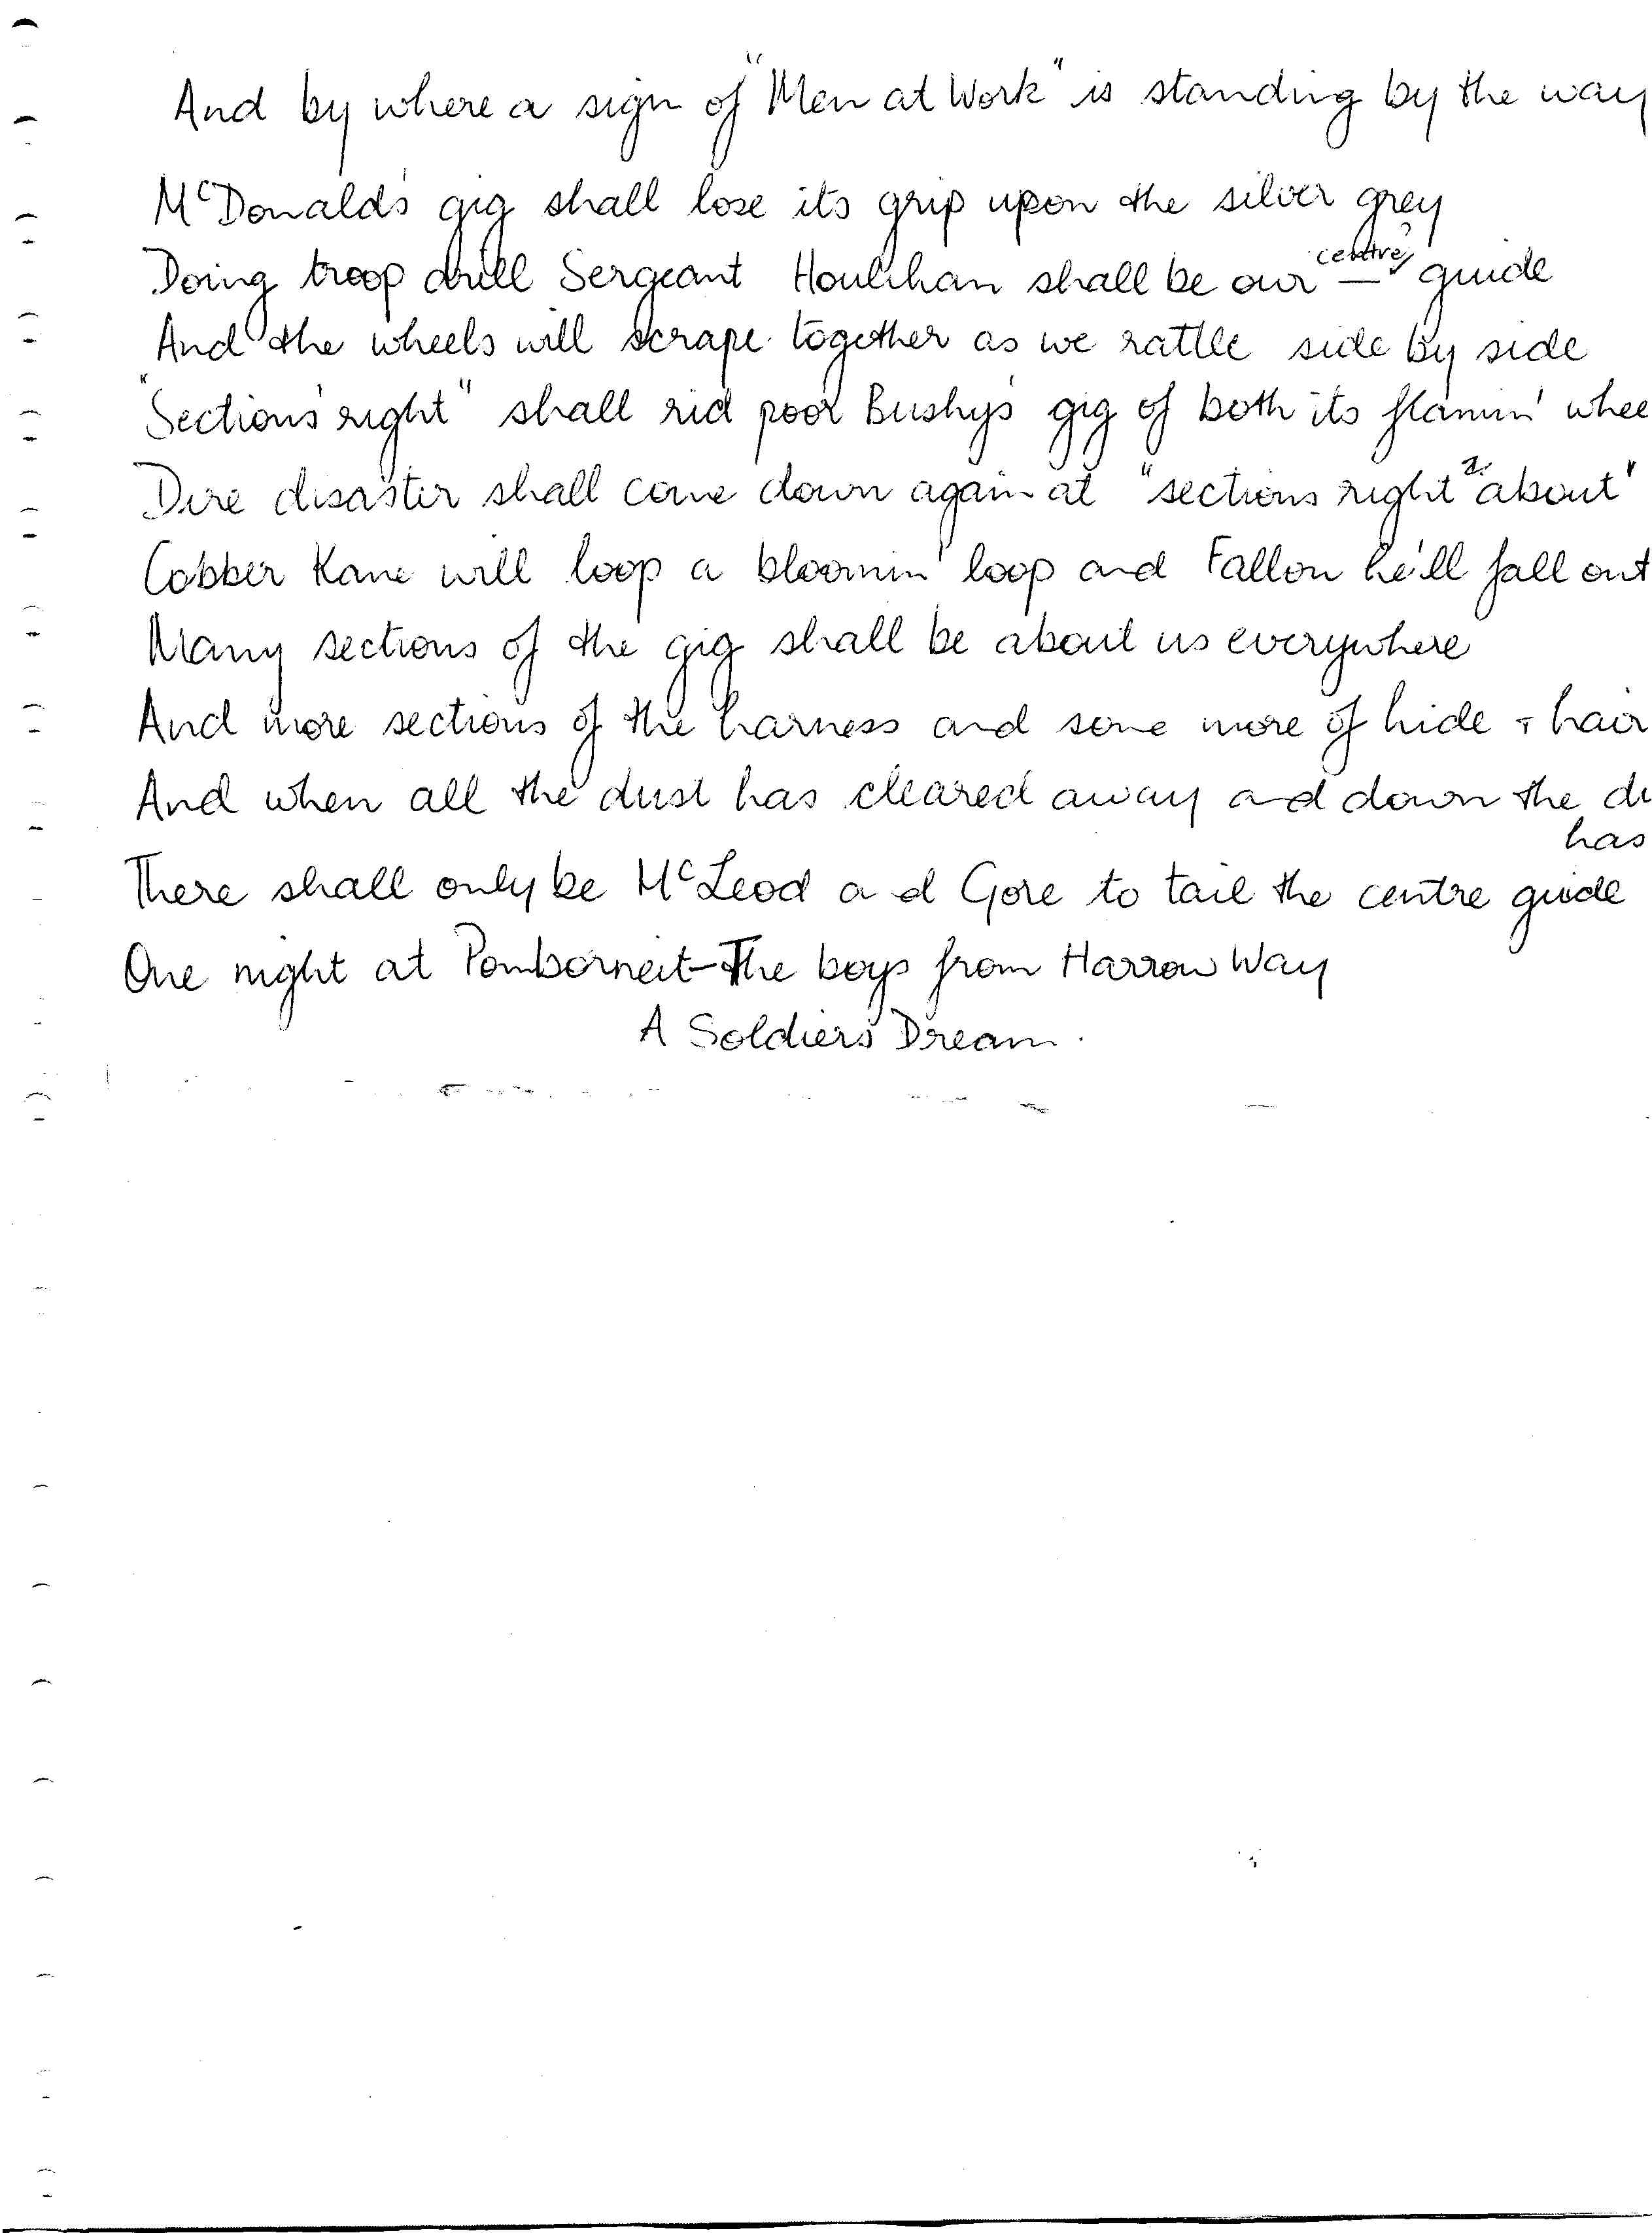 And by where a sign of "Men at Work" is standing by the way
McDonald's gig shall lose its grip upon the silver grey
Doing troop drill Sergeant Houlihan shall be our centre guide
And the wheels will scrape together as we rattle side by side
"Sections right" shall rid poor Bushy's gig of both its flamin' whee
Dire disaster shall come down again at "sections right about"
Cobber Kane will loop a bloomin' loop and Fallon he'll fall out
Many sections of the gig shall be about us everywhere
And more sections of the harness and some more of hide + hair
And when all the dust has cleared away and down the
has
There shall only be McLeod and Gore to tail the centre guide
One night at Pomborneit - The boys from Harrow Way
A Soldier's Dream.